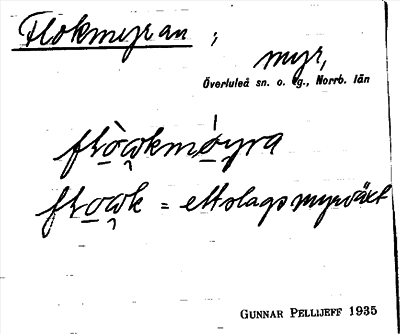 Flokmyran ;
myr,
Överluleå sn. o. tg., Norrb. län
flo̲o̲kmo̲yra
flo̲o̲k = ett slags myrväxt
GUNNAR PELLIJEFF 1935